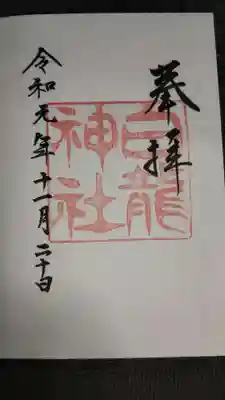 奉拝
白龍
神社
令和元年十一月二十日